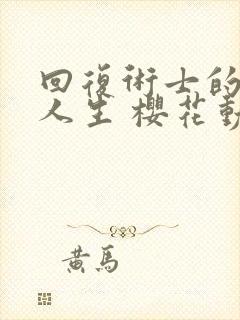 回復術士的
人生 櫻花
黃馬